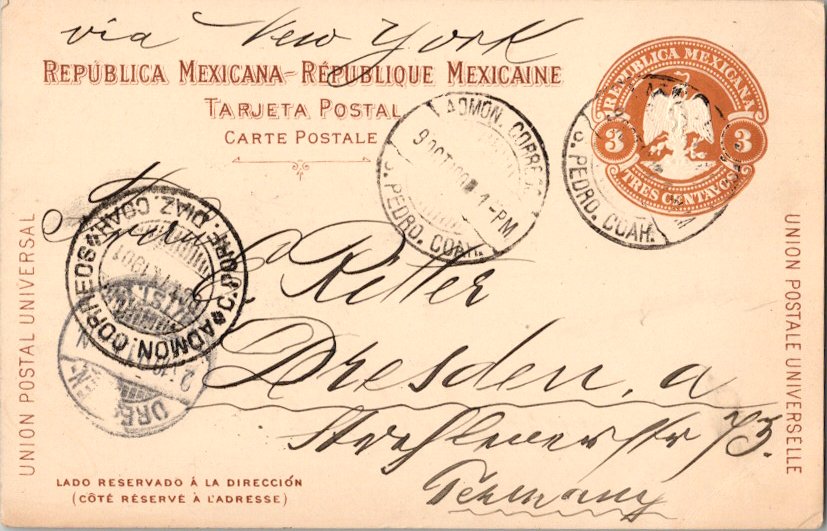 via New York
REPÚBLICA MEXICANA–RÉPUBLIQUE MEXICAINE
TARJETA POSTAL
CARTE POSTALE
REPUBLICA MEXICANA
3 3
TRES CENTAVOS
ADMON. CORREOS
9 OCT 1-PM
S. PEDRO. COAH.
S. PEDRO. COAH.
UNION POSTAL UNIVERSAL
UNION POSTALE UNIVERSELLE
ADMON. CORREOS
C. PORF. DIAZ. COAH.
1901
DRESDEN-ALTST.
Ritter
Dresden, a
73.
Germany
LADO RESERVADO Á LA DIRECCIÓN
(CÔTÉ RÉSERVÉ À L'ADRESSE)